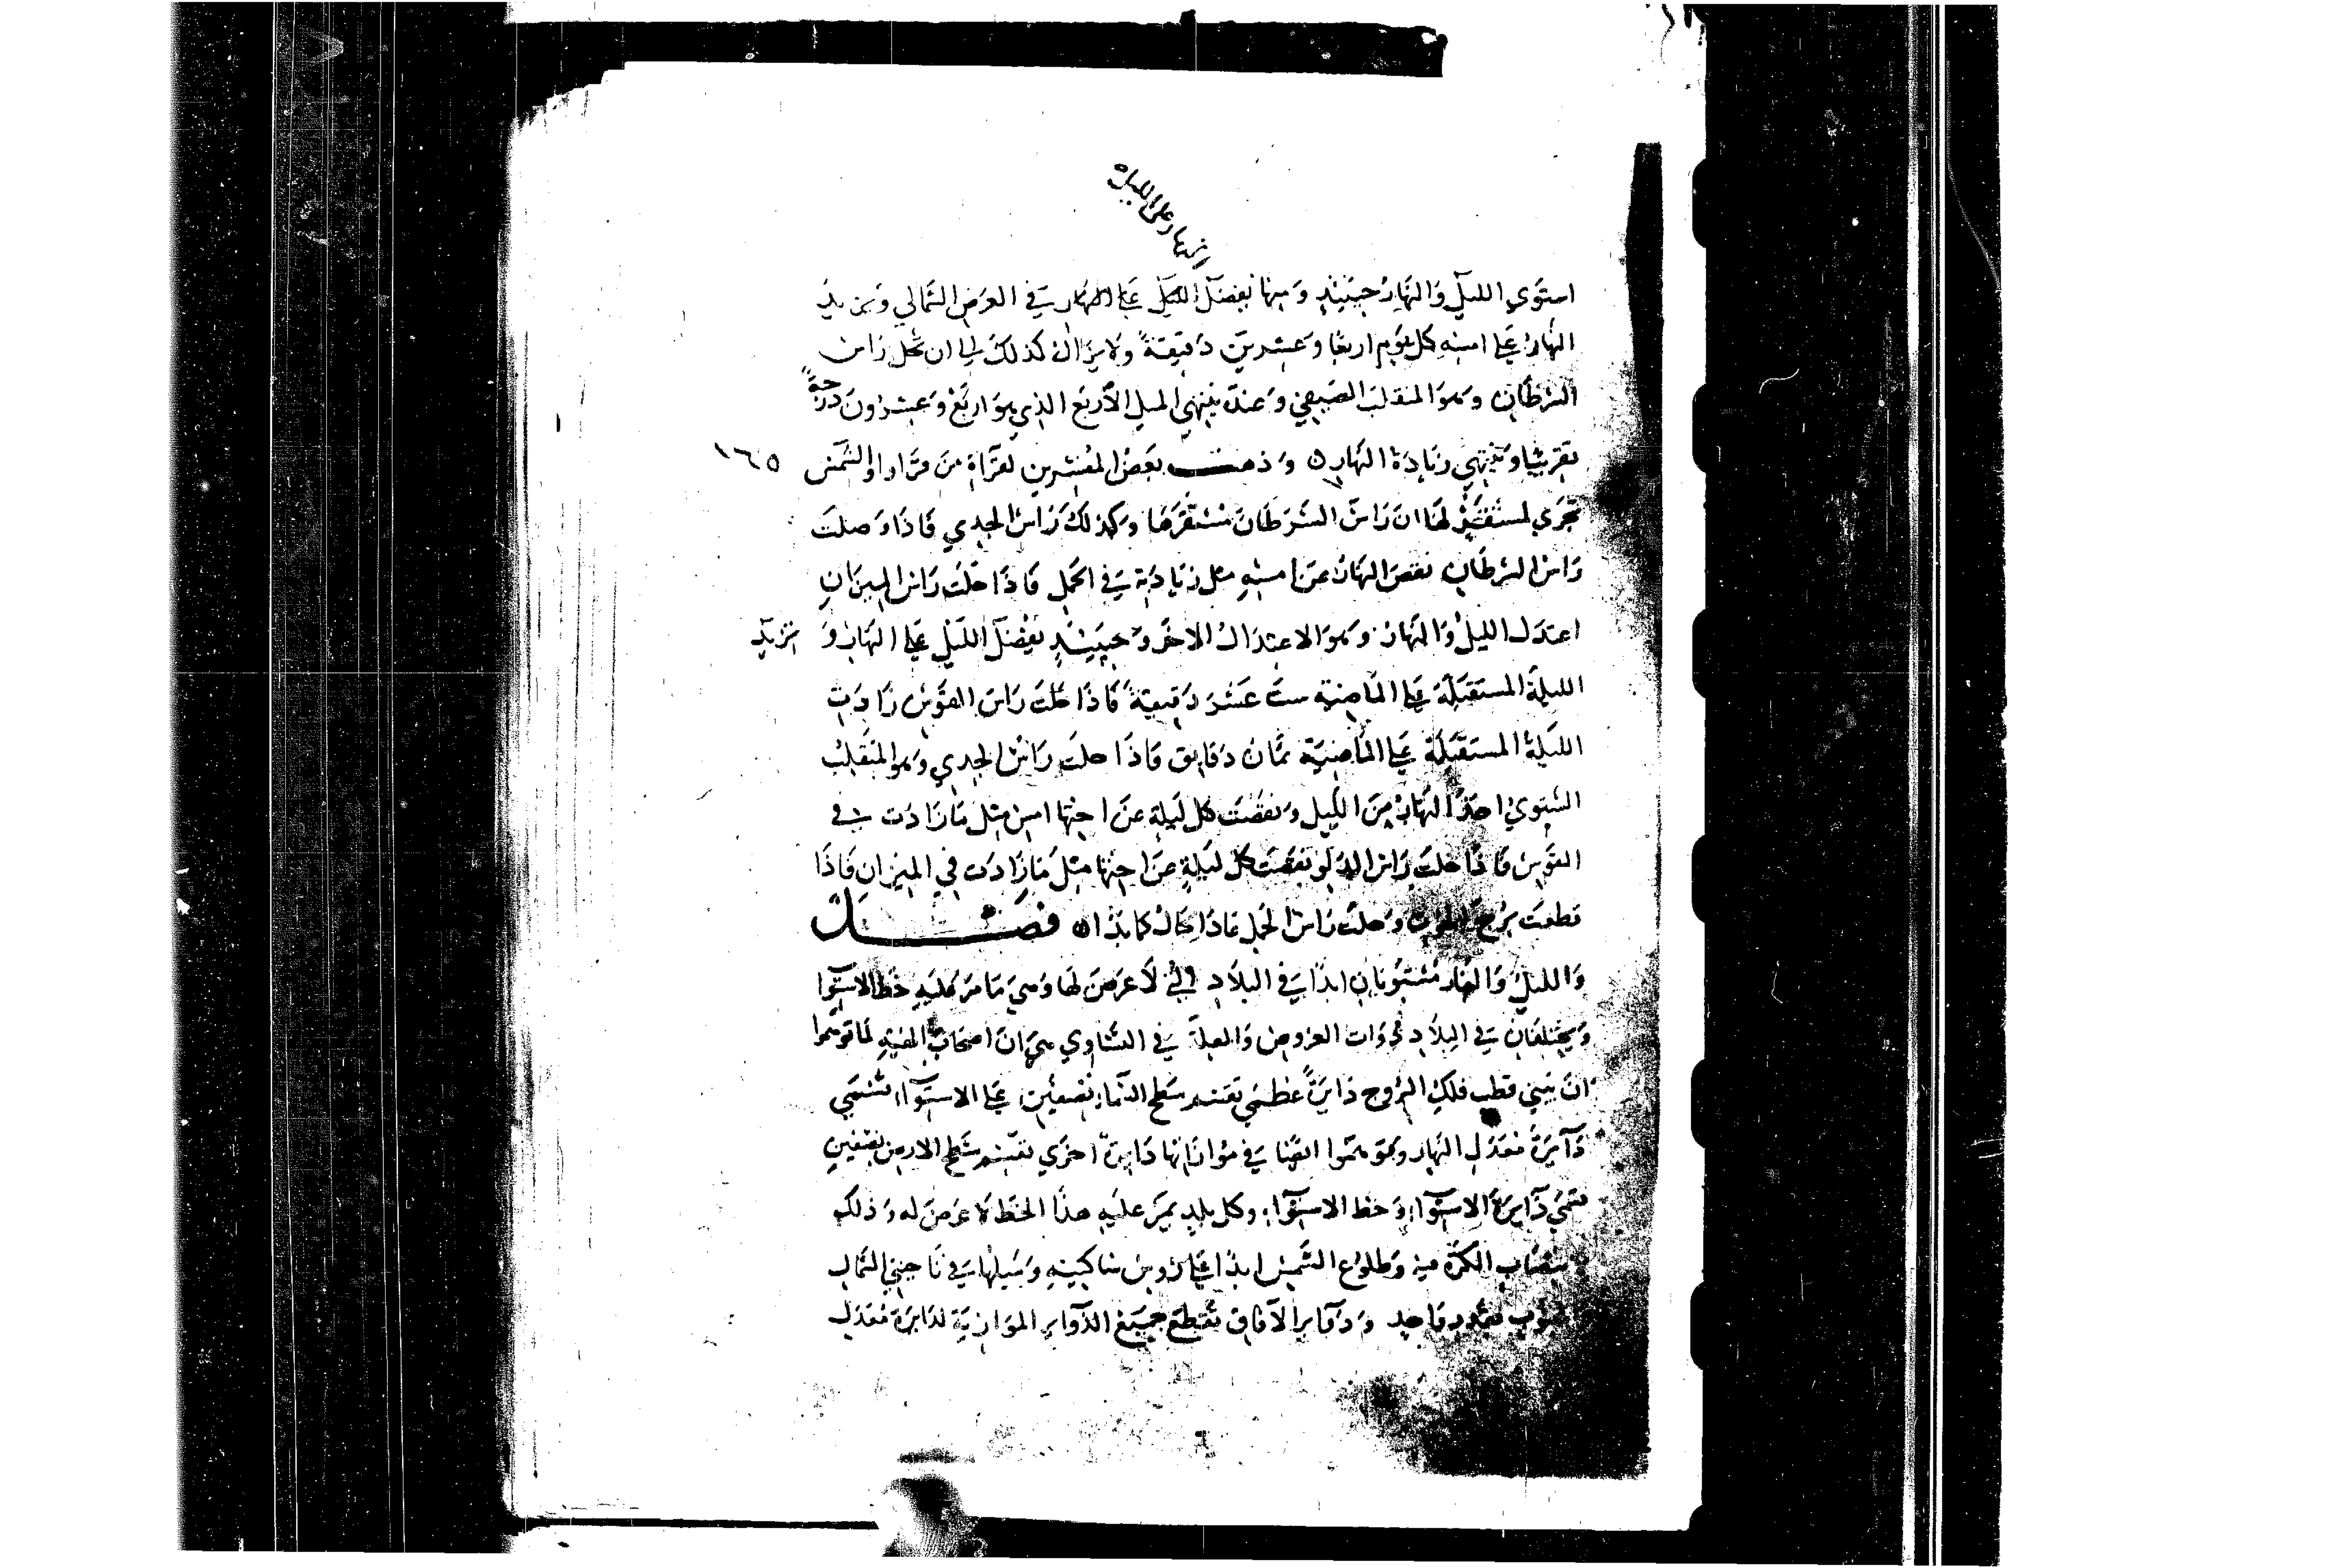 نهار على الليل
استوي الليل والنهار حينئذ ومنها يفضل الليل على النهار في العرض الشمالي ويزيد
النهار على امسه كل يوم اربعا وعشرين دقيقة ولا يزال كذلك الى ان تحل راس
السرطان وهو المنقلب الصيفي وعنده ينتهي الميل الذي هو اربع وعشرون درجة
تقريبا وتنتهي زيادة النهار وذهب بعض المفسرين لقراة من قرا والشمس
١٦٥
تجري لمستقر لها ان راس السرطان مستقرها وكذلك راس الجدي فاذا وصلت
راس السرطان نقص النهار عن امسه مثل زيادته في الحمل فاذا حلت راس الميزان
اعتدل الليل والنهار وهو الاعتدال الاخر وحينئذ يفضل الليل على النهار و تزيد
الليلة المستقبلة على الماضية ست عشر دقيقة فاذا حلت راس القوس زادت
الليلة المستقبلة على الماضية ثمان دقايق فاذا حلت راس الجدي وهو المنقلب
الشتوي اخذ النهار من الليل ونقصت كل ليلة عن اختها امس مثل ما زادت في
القوس فاذا حلت راس الدلو نقصت كل ليلة عن اختها مثل ما زادت في الميزان فاذا
قطعت برج الحوت وحلت راس الحمل عاد الحال كما بدا فصل
والليل والنهار مستويان ابدا في البلاد التي لا عرض لها وهي ما مر عليه خط الاستوا
ويختلفان في البلاد ذوات العروض والعلة في التساوي هي ان اصحاب الهيئة لما توهموا
ان بين قطبي فلك البروج دايرة عظمى تقسم سطح السماء نصفين على الاستواء تسمى
دآيرة معدل النهار وتوهموا ايضا في موازاتها دايرة اخرى تقسم سطح الارض بنصفين
تسمى دآيرة الاستوآء وخط الاستوآء وكل بلد يمر عليه هذا الخط لا عرض له وذلك
الكرة فيه وطلوع الشمس ابدا على روس ساكنيه وميلها في ناحيتي الشمال
واحد ودوآير الآفاق تقطع جميع الدوآير الموازية لدايرة معدل